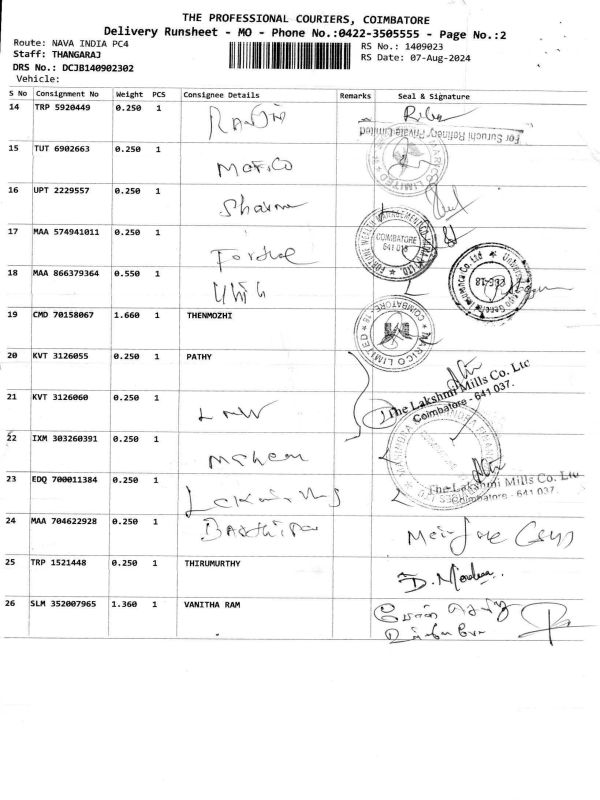 THE PROFESSIONAL COURIERS, COIMBATORE
Delivery Runsheet - MO - Phone No.:0422-3505555 - Page No.:2
Route: NAVA INDIA PC4 RS No.: 1409023
Staff: THANGARAJ RS Date: 07-Aug-2024
DRS No.: DCJB140902302
Vehicle:
S No Consignment No Weight PCS Consignee Details Remarks Seal & Signature
14 TRP 5920449 0.250 1
For Suruchi Refinery Private Limited
15 TUT 6902663 0.250 1 Marico
MARICO LIMITED
16 UPT 2229557 0.250 1 Sharma
17 MAA 574941011 0.250 1
COIMBATORE
641 018
18 MAA 866379364 0.550 1
19 CMD 70158067 1.660 1 THENMOZHI
MARICO LIMITED COIMBATORE - 18
20 KVT 3126055 0.250 1 PATHY
The Lakshmi Mills Co. Ltd
Coimbatore - 641 037.
21 KVT 3126060 0.250 1 LMW
22 IXM 303260391 0.250 1
23 EDQ 700011384 0.250 1
The Lakshmi Mills Co. Ltd
Coimbatore - 641 037.
24 MAA 704622928 0.250 1
25 TRP 1521448 0.250 1 THIRUMURTHY
26 SLM 352007965 1.360 1 VANITHA RAM